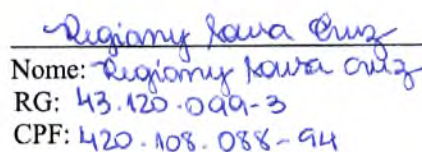 Regiany Sousa Cruz
Nome: Regiany Sousa Cruz
RG: 43.120.099-3
CPF: 420.108.088-94